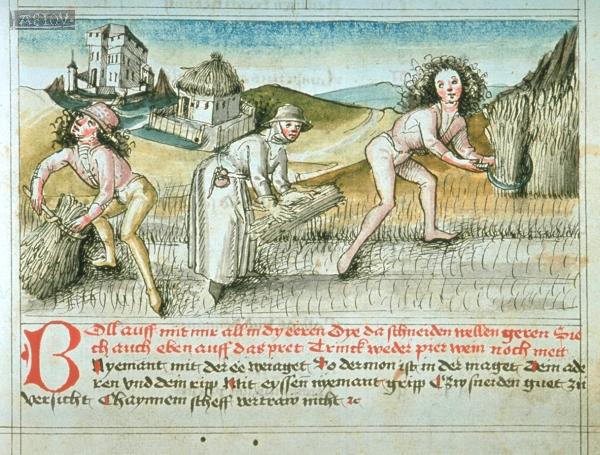 Woll auff mit mir all in dy eeren Dye da schneiden wellen geren Sie
ch auch eben auff das pret Trinck weder pier wein noch mett
Nyemant mit der ee weraget So der mon ist in der maget Dem ade
ren vnd dem ripp Mit eyssen nyemant gripp Czw snerden guet zu
versicht Chaynnem scheff vertraw nicht